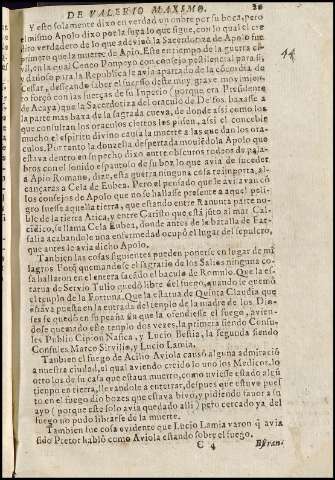 DE VALERIO MAXIMO. 20
Y esto solamente dixo en verdad un onbre por su boca, pero
el mismo Apolo dixo por la suya lo que sigue, con lo qual el
dito verdadero de lo que adevinò la Sacerdotiza de Apolo fue
primero que la muerte de Apio. Este en tiempo de la guerra ci-
vil, en la cual Cneno Ponpeyo con consejo pestilencial para si,
y dañoso para la Republica se avia apartado de la còcordia de
Cessar, desseando saber el sucesso deste muy grave movimien-
to forçò con las fuerças de su Inperio (porque era Presidente
de Acaya) que la Sacerdotiza del oraculo de Delfos baxasse à
la parte mas baxa de la sagrada cueva, de donde assi como los
que consultan los oraculos ciertos los piden, assi el concebir
mucho el espiritu divino causa la muerte a las que dan los ora-
culos. Por tanto la donzella despertada movièdola Apolo que
estava dentro en su pecho dixo entre obscuros rodeos de pala-
bras con el sonido espantoso de su boz, lo que avia de suceder
a Apio Romano, dize, esta guerra ninguna cosa te inporta, al-
cançaras a Cela de Eubea. Pero el pensando que le avisavan cõ
los consejos de Apolo que no se hallasse presente a aquel peli-
gro fuesse aquella tierra, que estando entre Ranunta parte no-
ble de la tierra Atica, y entre Caristo que està jũto al mar Cal-
cidico, se llama Cela Eubea, donde antes de la batalla de Far-
salia acabandole una enfermedad ocupò el lugar del sepulcro,
que antes le avia dicho Apolo.
Tanbien las cosas siguientes pueden ponerse en lugar de mi
lagros. Uno q̃ quemandose el sagrario de los Salios ninguna co-
sa hallaron en el entera sacãdo el baculo de Romulo. Que la es-
tatua de Servio Tulio quedò libre del fuego, quando se quemò
el templo de la Fortuna. Que la estatua de Quinta Claudia que
estava puesta en la entrada del templo de la madre de los Dio-
ses se quedò en su peaña sin que la ofendiesse el fuego, avien-
dose quemado este templo dos vezes, la primera siendo Consu-
les Publio Cipion Nasica, y Lucio Bestia, la segunda siendo
Consules Marco Sirvilio, y Lucio Lamia.
Tanbien el fuego de Acilio Aviola causò alguna admiraciõ
a nuestra ciudad, el qual aviendo creido lo uno los Medicos, lo
otro los de su casa que estava muerto, como uviesse estado algũ
tiempo en tierra, llevandole a enterrar, despues que estuvo pues
to en el fuego dio bozes que estava bivo, y pidiendo favor a su
ayo (porque este solo avia quedado alli) pero cercado ya del
fuego no pudo librarse de la muerte.
Tambien fue cosa evidente que Lucio Lamia varon q̃ avia
sido Pretor hablò como Aviola estando sobre el fuego.
C 4